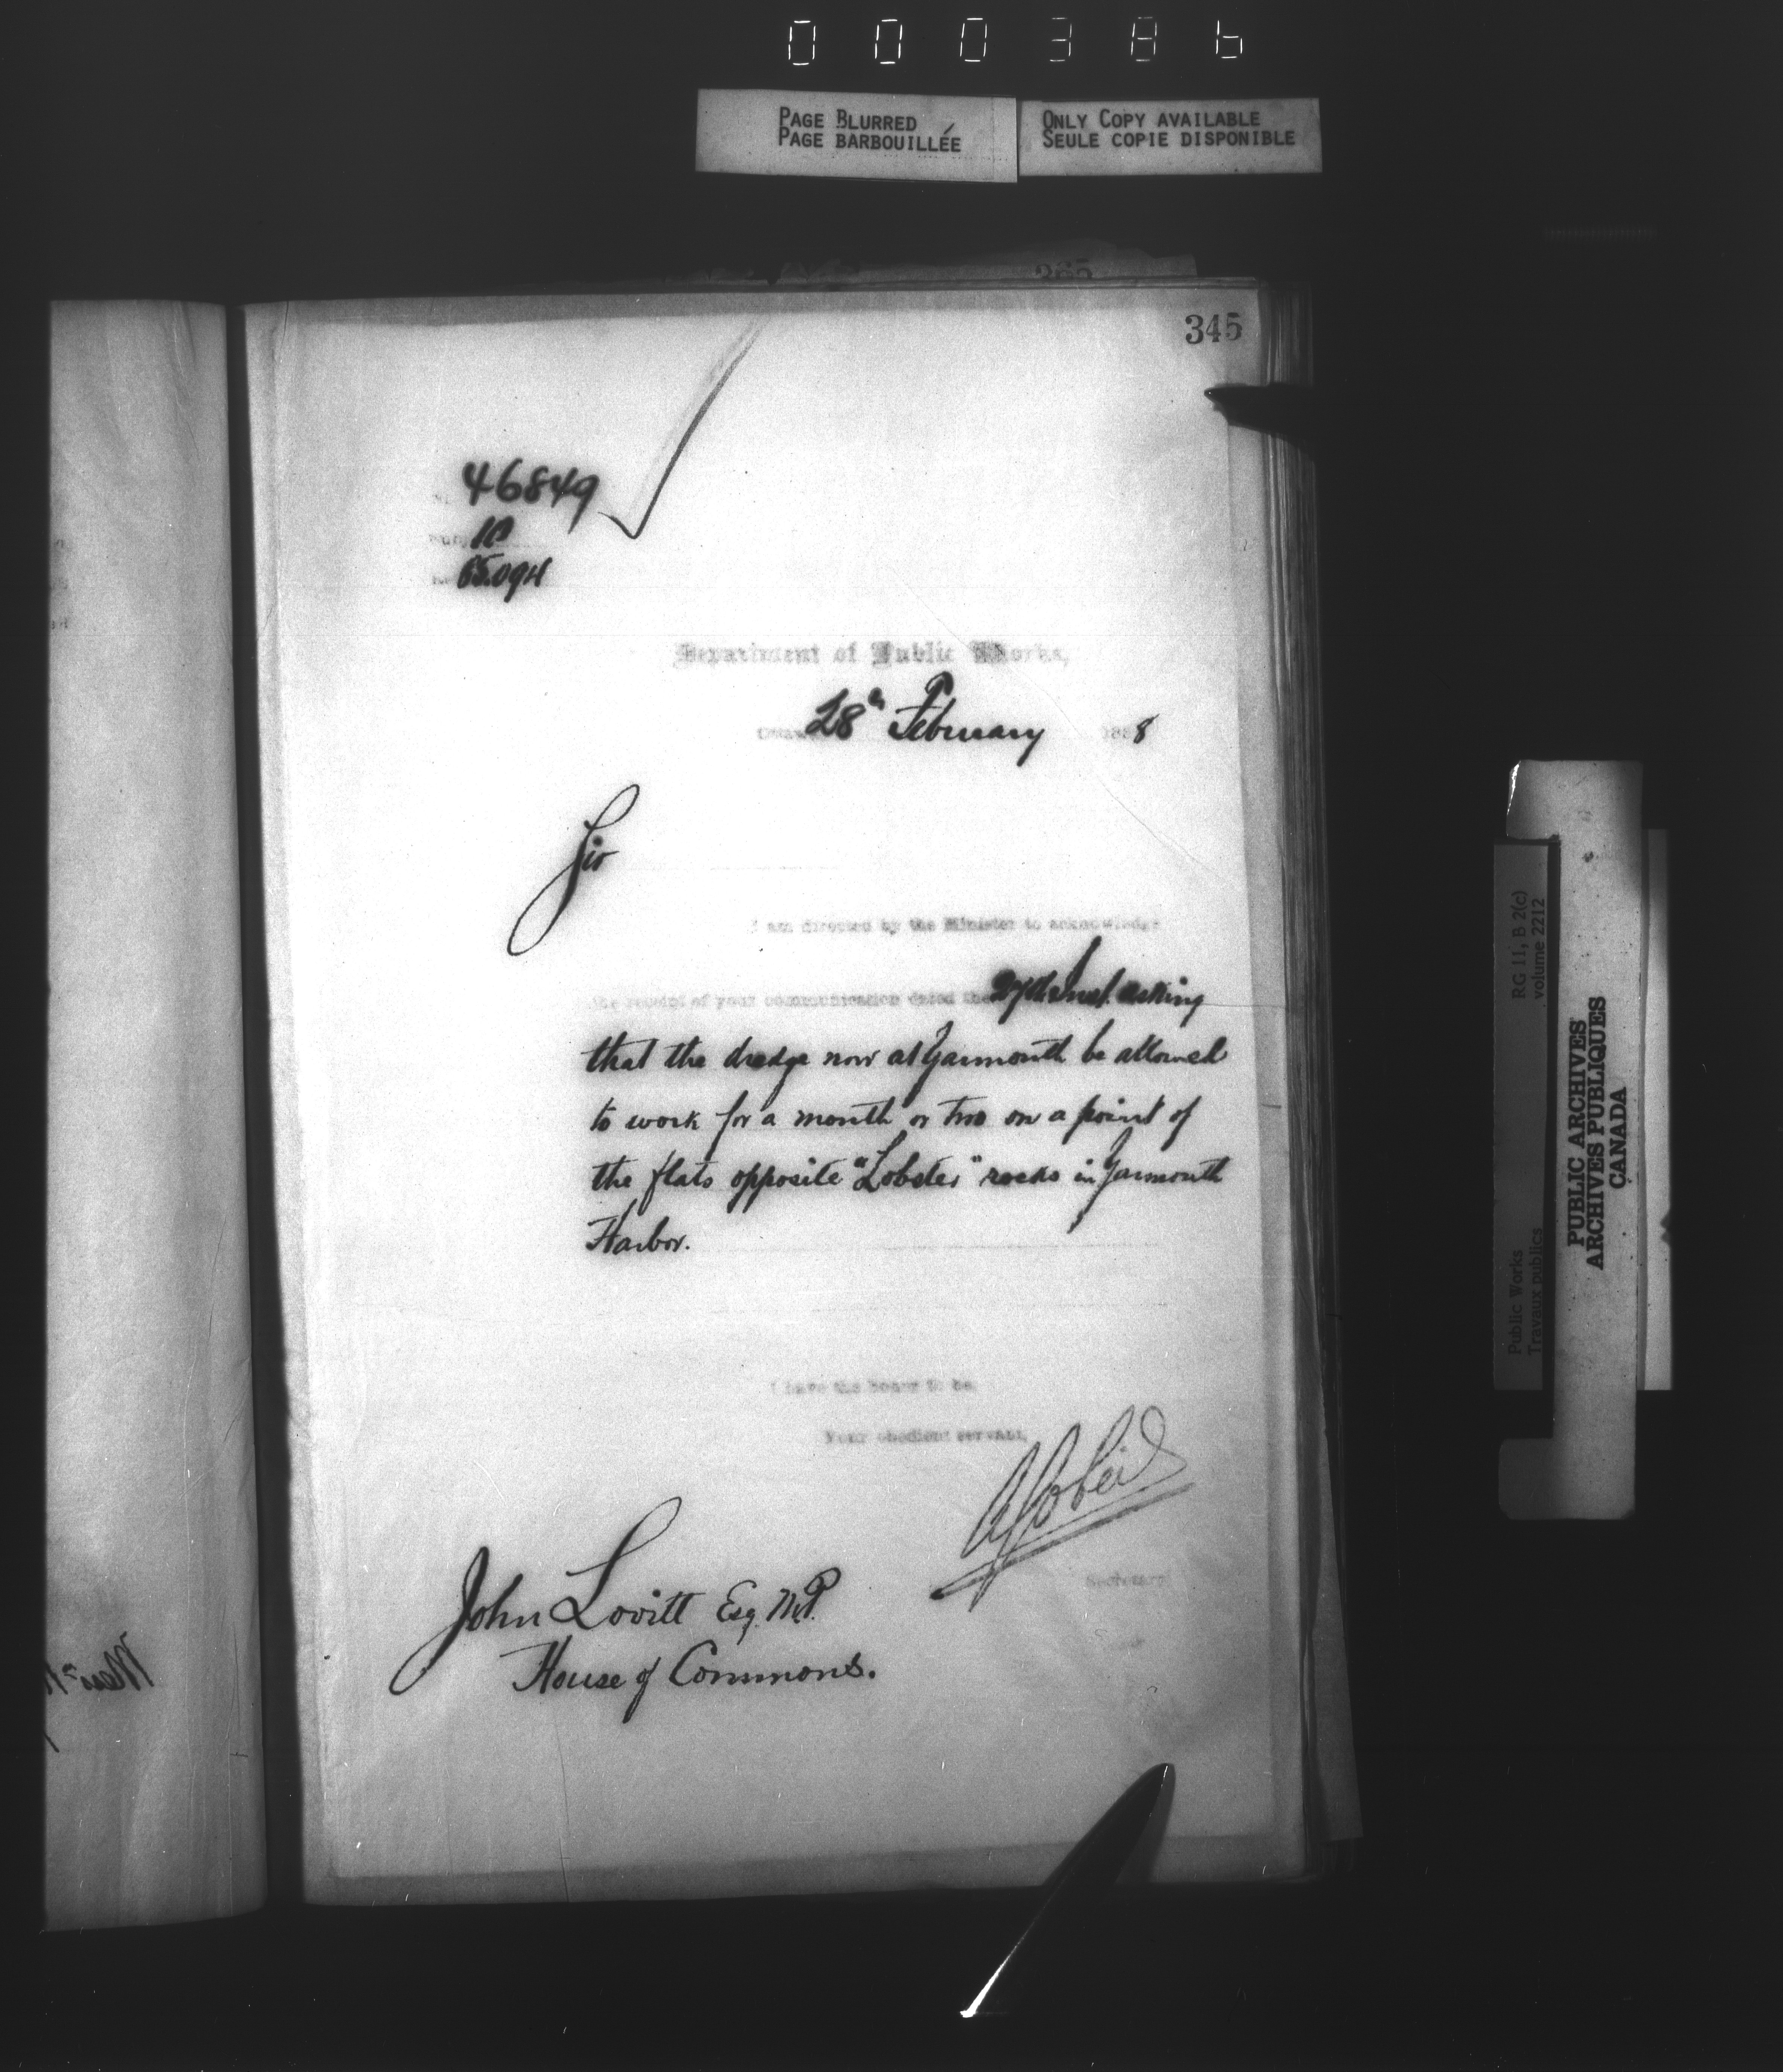 000386
PAGE BLURRED
PAGE BARBOUILLÉE
ONLY COPY AVAILABLE
SEULE COPIE DISPONIBLE
345
46849
10
65.094
Department of Public Works,
Ottawa 28th February 1888
Sir
I am directed by the Minister to acknowledge
the receipt of your communication dated the 27th Inst. asking
that the dredge now at Yarmouth be allowed
to work for a month or two on a point of
the flats opposite "Lobster" rocks in Yarmouth
Harbor.
I have the honor to be,
Your obedient servant,
A Gobeil
Secretary
John Lovitt Esq. M.P.
House of Commons.
RG 11, B 2(c)
volume 2212
Public Works
Travaux publics
PUBLIC ARCHIVES
ARCHIVES PUBLIQUES
CANADA